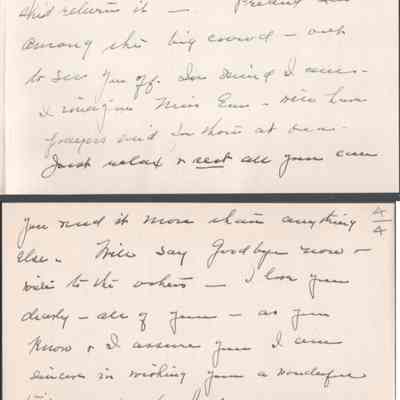 ship returns it — Pretend
among the big crowd — out
to see you off. In mind I am —
I imagine Miss — will have
prayers said for those at sea —
Just relax & rest all you can
you need it more than anything
4/4
else. Will say Goodbye now &
write to the others — I love you
dearly — all of you — as you
know & I assure you I am
sincere in wishing you a wonderful